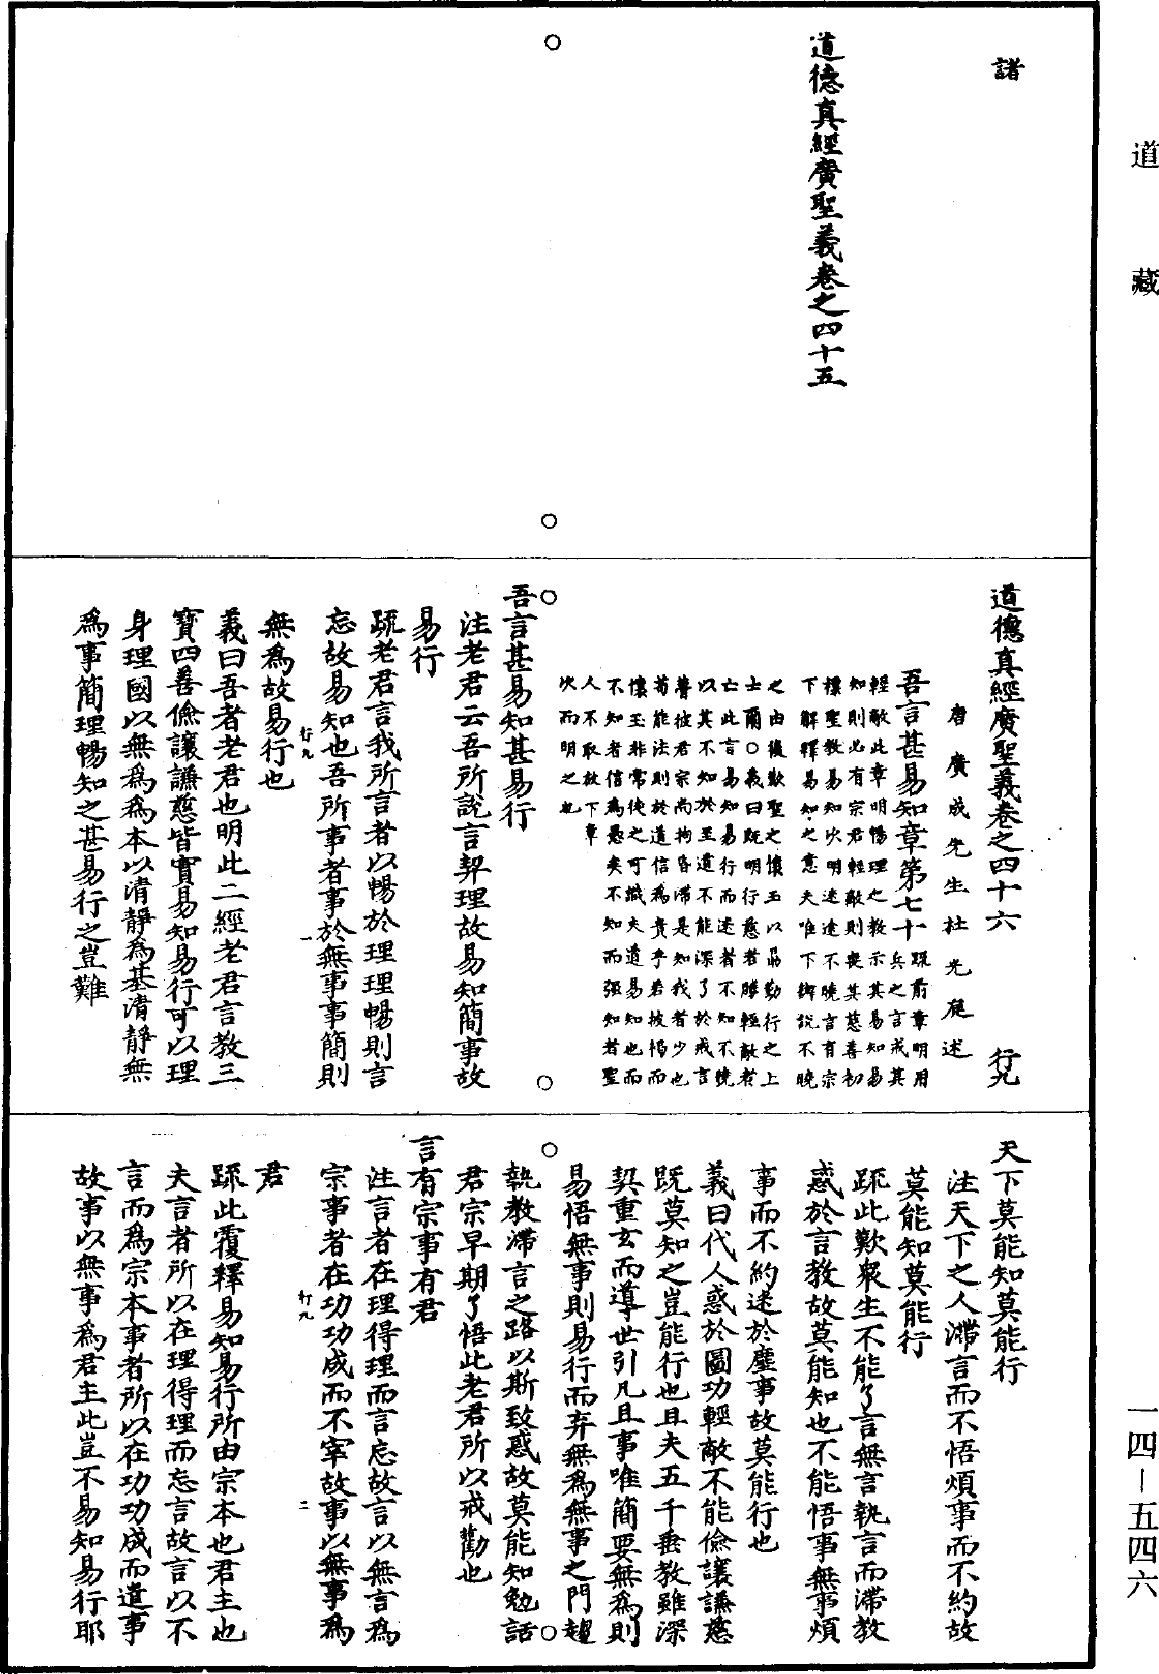 道藏
諸
道德真經廣聖義卷之四十五
道德真經廣聖義卷之四十六 行九
唐廣成先生杜光庭述
吾言甚易知章第七十
疏前章明用
兵之言戒其
輕敵此章明暢理之教示其易知易
知則必有宗君輕敵則喪其慈善初
標聖教易知次明迷途不曉言有宗
下解釋易知之意夫唯下辯說不曉
之由後歎聖之懷玉以勗勤行之上
士爾○義曰既明行慈若勝輕敵者
亡此言易知易行而迷者不知不曉
以其不知於至道不能深了於戒言
瞢彼君宗尚拘昏滯是知我者少也
苟能法則於道信為貴乎若披褐而
懷玉非常徒之可識夫道易知也而
不知者信為愚矣不知而強知者聖
人不取故下章
次而明之也
吾言甚易知甚易行
注老君云吾所說言契理故易知簡事故
易行
疏老君言我所言者以暢於理理暢則言
忘故易知也吾所事者事於無事事簡則
行九 一
無為故易行也
義曰吾者老君也明此二經老君言教三
寶四善儉讓謙慈皆實易知易行可以理
身理國以無為為本以清靜為基清靜無
為事簡理暢知之甚易行之豈難
天下莫能知莫能行
注天下之人滯言而不悟煩事而不約故
莫能知莫能行
疏此歎眾生不能了言無言執言而滯教
惑於言教故莫能知也不能悟事無事煩
事而不約迷於塵事故莫能行也
義曰代人惑於圖功輕敵不能儉讓謙慈
既莫知之豈能行也且夫五千垂教雖深
契重玄而導世引凡且事唯簡要無為則
易悟無事則易行而弃無為無事之門趨
執教滯言之路以斯致惑故莫能知勉話
君宗早期了悟此老君所以戒勸也
言有宗事有君
注言者在理得理而言忘故言以無言為
宗事者在功功成而不宰故事以無事為
行九 二
君
疏此覆釋易知易行所由宗本也君主也
夫言者所以在理得理而忘言故言以不
言而為宗本事者所以在功功成而遣事
故事以無事為君主此豈不易知易行耶
一四—五四六